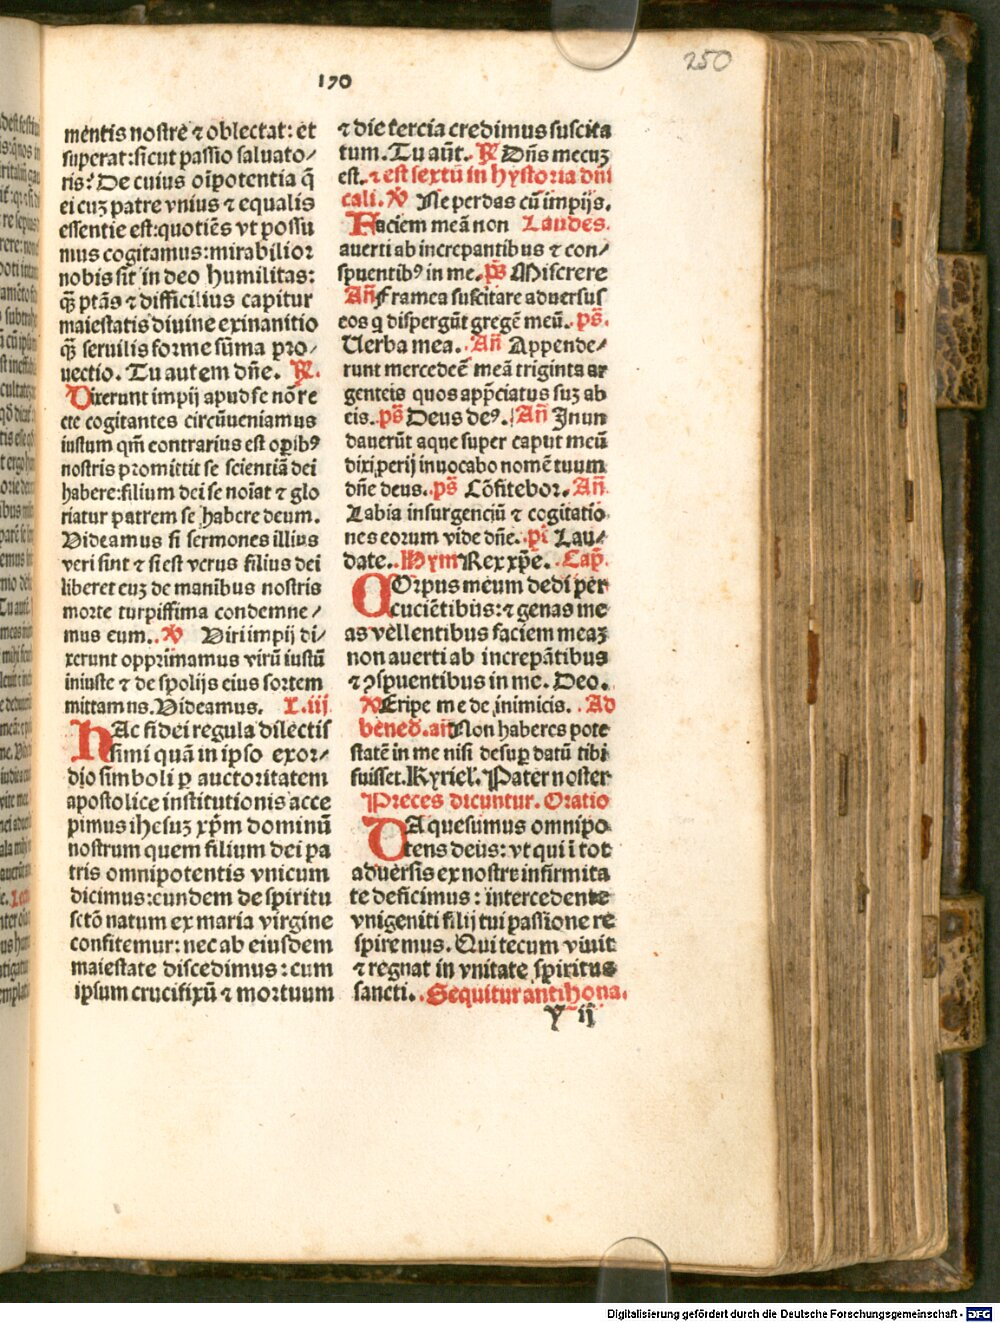 250
170
mentis nostre ⁊ oblectat: et
superat: sicut passio saluato/
ris: De cuius oīpotentia q̄
ei cuꝫ patre vnius ⁊ equalis
essentie est: quotiēs vt possu
mus cogitamus: mirabilior
nobis sit in deo humilitas:
qꝫ̄ ptās ⁊ difficilius capitur
maiestatis diuine exinanitio
qꝫ̄ seruilis forme sūma pro/
uectio. Tu autem dn̄e. ℟.
Dixerunt impij apud se nō re
cte cogitantes circūueniamus
iustum qm̄ contrarius est oꝑibꝰ
nostris promittit se scientiā dei
habere: filium dei se noīat ⁊ glo
riatur patrem se habere deum.
Videamus si sermones illius
veri sint ⁊ si est verus filius dei
liberet euꝫ de manibus nostris
morte turpissima condemne/
mus eum. ℣ Viri impij di/
xerunt opprimamus virū iustū
iniuste ⁊ de spolijs eius sortem
mittamus. Videamus. L. iij
HAc fidei regula dilectis
simi quā in ipso exor/
dio simboli ꝑ auctoritatem
apostolice institutionis acce
pimus ihesuꝫ xp̄m dominū
nostrum quem filium dei pa
tris omnipotentis vnicum
dicimus: eundem de spiritu
sctō natum ex maria virgine
confitemur: nec ab eiusdem
maiestate discedimus: cum
ipsum crucifixū ⁊ mortuum
⁊ die tercia credimus suscita
tum. Tu aūt. ℟ Dn̄s mecuꝫ
est. ⁊ est sextū in hystoria dn̄i
cali. ℣ Ne perdas cū impijs.
Faciem meā non Laudes.
auerti ab increpantibus ⁊ con/
spuentibꝰ in me. ps̄ Miserere
An̄ Framea suscitare aduersus
eos q dispergūt gregē meū. ps̄.
Uerba mea. An̄ Appende/
runt mercedeē meā triginta ar
genteis quos app̄ciatus suꝫ ab
eis. ps̄ Deus deꝰ. An̄ Inun
dauerūt aque super caput meū
dixi perij inuocabo nomē tuum
dn̄e deus. ps̄ Cōfitebor. An̄.
Labia insurgenciū ⁊ cogitatio
nes eorum vide dn̄e. ps̄ Lau/
date. Hym Rex xp̄e. Cap̄.
COrpus meum dedi per
cuciētibus: ⁊ genas me
as vellentibus faciem meaꝫ
non auerti ab increpātibus
⁊ ꝯspuentibus in me. Deo.
℣ Eripe me de inimicis. Ad
bened. an̄ Non haberes pote
statē in me nisi desuꝑ datū tibi
fuisset. Kyriel. Pater noster
Preces dicuntur. Oratio
DA quesumus omnipo
tens deus: vt qui ī tot
aduersis ex nostra infirmita
te deficimus: intercedente
vnigeniti filij tui passione re
spiremus. Qui tecum viuit
⁊ regnat in vnitate spiritus
sancti. Sequitur antihona.
Y ij
Digitalisierung gefördert durch die Deutsche Forschungsgemeinschaft - DFG